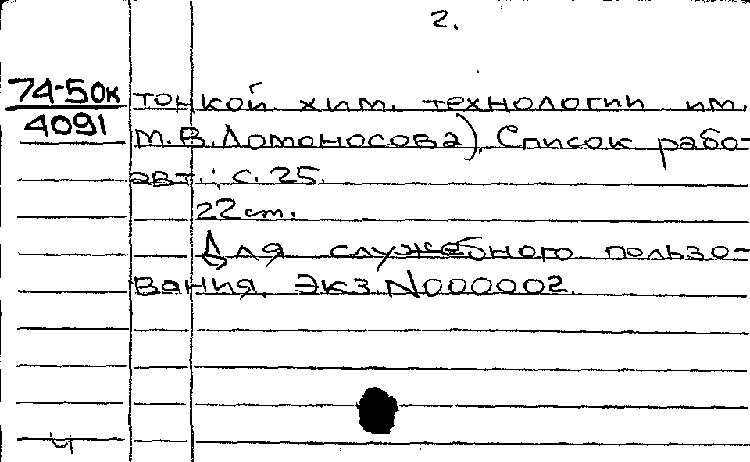 2.
74-5Ок
4091
тонкой хим. технологии им.
М.В.Ломоносова). Список рабо-
авт.: с. 25.
22 cm.
Для служебного пользо-
вания. Экз. N000002.
4